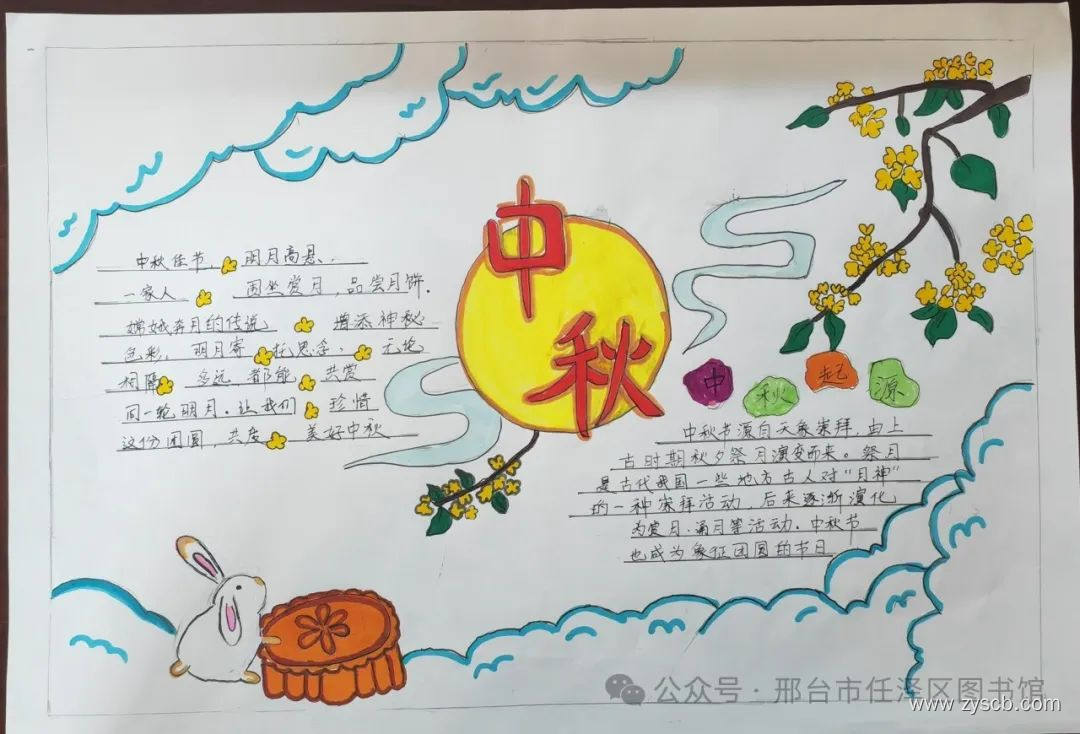 中秋
中秋佳节，明月高悬．
一家人 围坐赏月，品尝月饼．
嫦娥奔月的传说 增添神秘
色彩，明月寄托思念，无论
相隔 多远 都能 共赏
同一轮明月．让我们 珍惜
这份团圆，共度 美好中秋
中秋起源
中秋节源自天象崇拜，由上
古时期秋夕祭月演变而来。祭月
是古代我国一些地方古人对“月神”
的一种崇拜活动，后来逐渐演化
为赏月、诵月等活动．中秋节
也成为象征团圆的节日
公众号·邢台市任泽区图书馆
www.zyscb.com